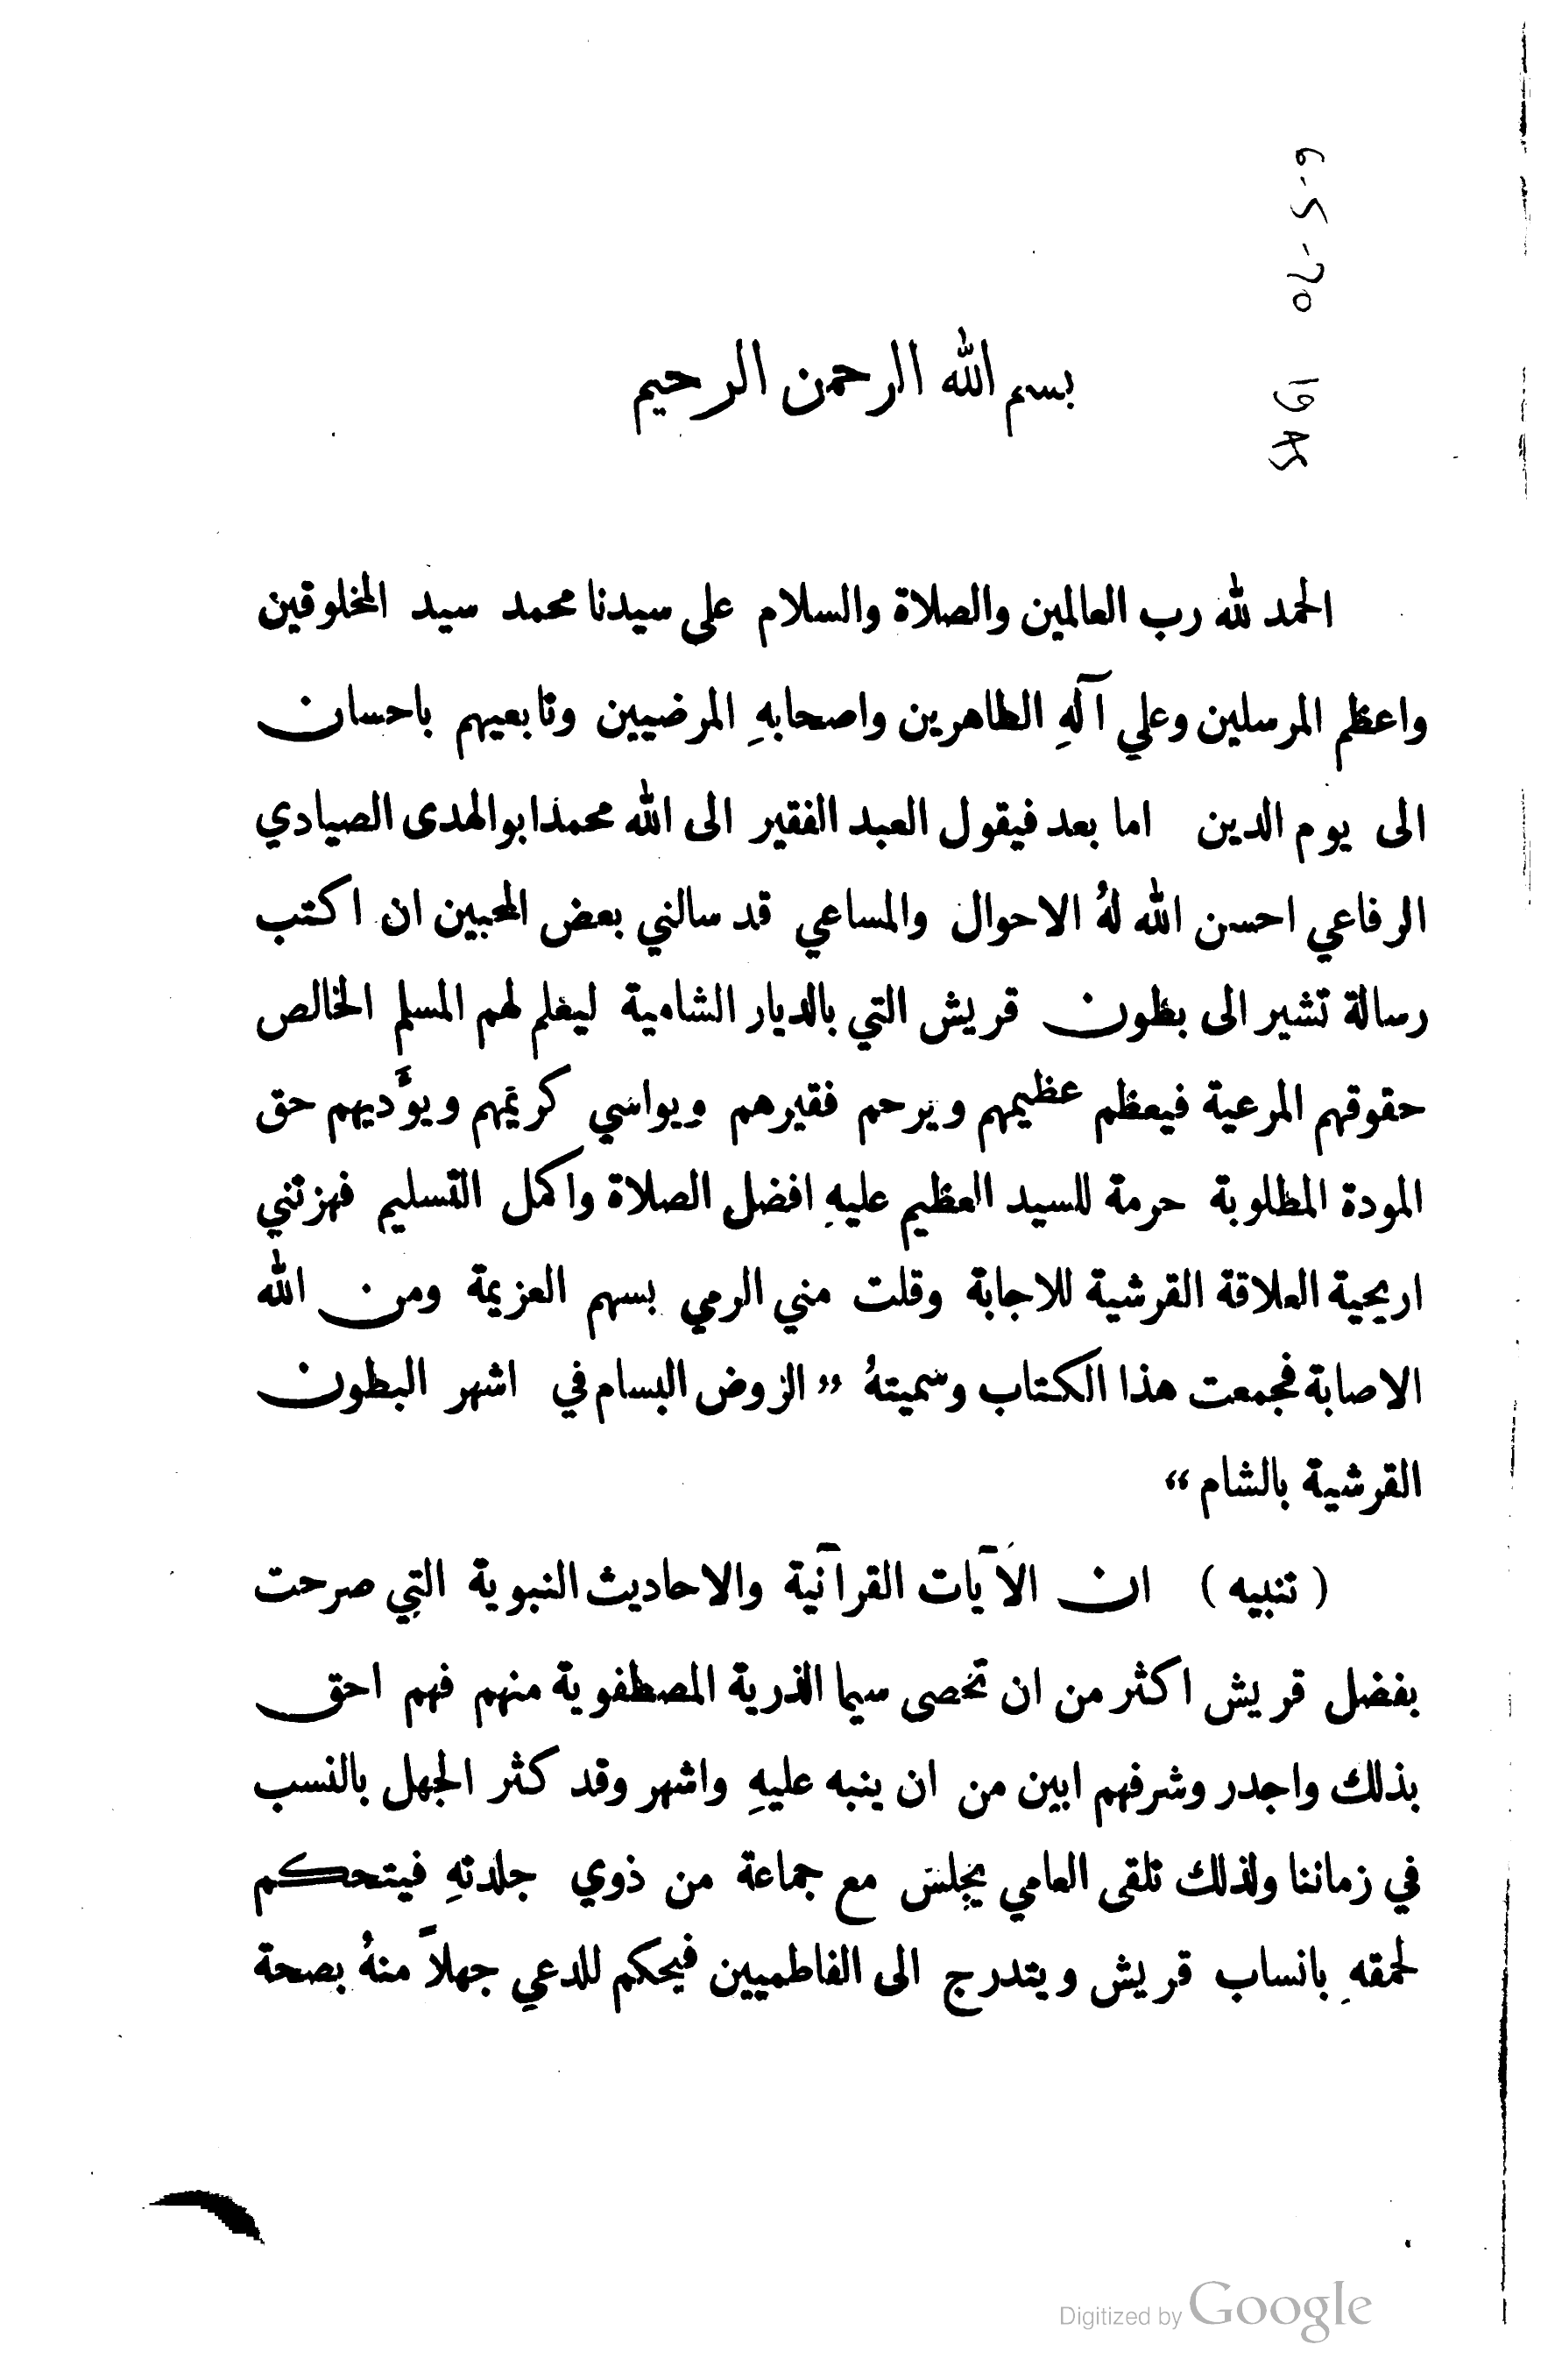 بسم الله الرحمن الرحيم
الحمد لله رب العالمين والصلاة والسلام على سيدنا محمد سيد المخلوقين
واعظم المرسلين وعلي آلهِ الطاهرين واصحابهِ المرضيين وتابعيهم باحسان
الى يوم الدين اما بعد فيقول العبد الفقير الى الله محمد ابو الهدى الصيادي
الرفاعي احسن الله لهُ الاحوال والمساعي قد سالني بعض المحبين ان اكتب
رسالة تشير الى بطون قريش التي بالديار الشامية ليعلم لهم المسلم الخالص
حقوقهم المرعية فيعظم عظيمهم ويرحم فقيرهم ويواسي كريمهم ويوَّديهم حق
المودة المطلوبة حرمة للسيد العظيم عليهِ افضل الصلاة واكمل التسليم فهزتني
اريحية العلاقة القرشية للاجابة وقلت مني الرمي بسهم العزيمة ومن الله
الاصابة فجمعت هذا الكتاب وسميتهُ „ الروض البسام في اشهر البطون
القرشية بالشام “
( تنبيه ) ان الآيات القرآنية والاحاديث النبوية التي صرحت
بفضل قريش اكثر من ان تحصى سيما الذرية المصطفوية منهم فهم احق
بذلك واجدر وشرفهم ابين من ان ينبه عليهِ واشهر وقد كثر الجهل بالنسب
في زماننا ولذلك تلقى العامي يجلس مع جماعة من ذوي جلدتهِ فيتحكم
لحمقهِ بانساب قريش ويتدرج الى الفاطميين فيحكم للدعي جهلاً منهُ بصحة
Digitized by Google